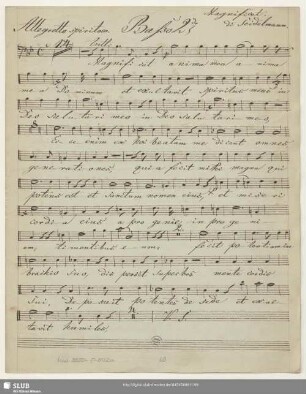 Magnificat
Allegretto spiritum Basso 2do di Seidelmann
Tutti
Magnificat anima mea a nima
me a Do minum et ex ultavit spiritus meus in
Deo salu ta ri meo in Deo salu ta ri me o
Ec ce enim ex hoc beatam me dicent omnes
ge ne rati ones qui a fecit mihi magna qui
potens est et Sanctum nomen ejus, et mi se ri
cordi a ejus a pro ge nie, in pro ge ni
em, ti mentibus e um, fecit po tenti am in
brachio suo, dis persit superbos mente cordis
sui, De po suit po tentes de sede et ex al
tavit humiles
V. S.
SLUB